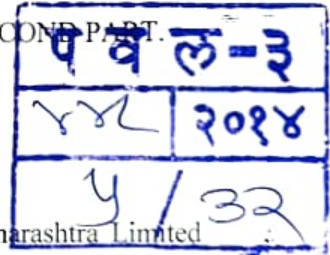 COND PART.
प व ल - ३
२०१४
५ / ३२
harashtra Limited